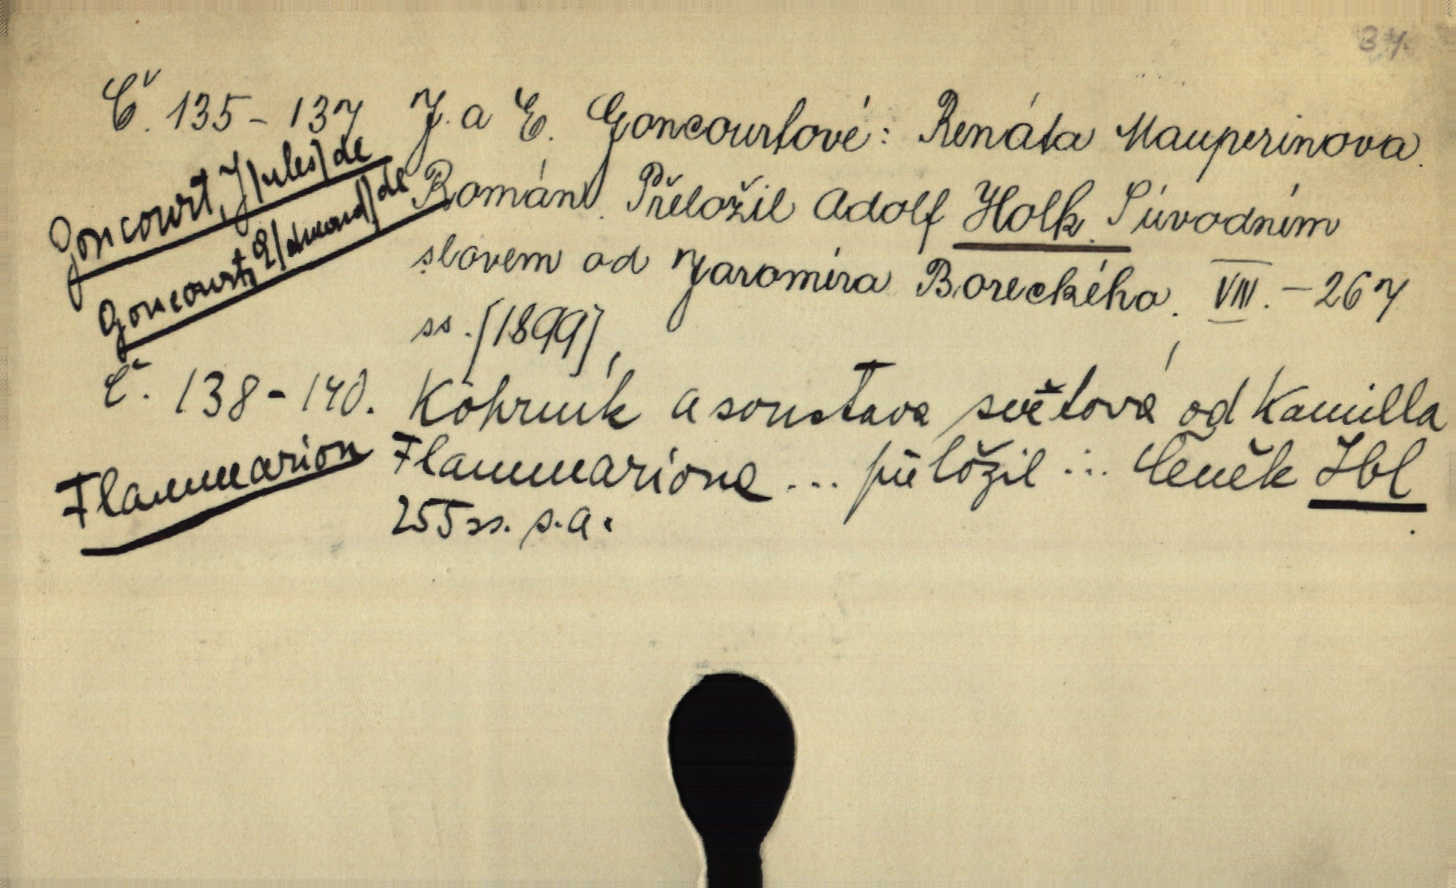 37.
Č. 135 - 137 J. a E. Goncourtové: Renáta Mauperinova.
Goncourt, J[ules] de
Goncourt, E[dmond] de
Román. Přeložil Adolf Holk. S úvodním
slovem od Jaromíra Boreckého. VIII. - 267
ss. [1899],
Č. 138 - 140. a soustava světová od Kamilla
Flammarion
Flammariona ... přeložil ... Čeněk Ibl
255 ss. s.a.